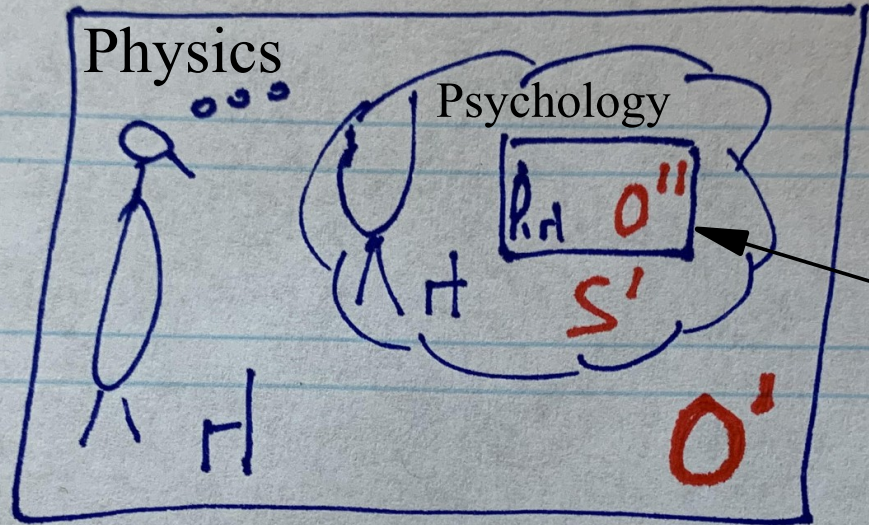 Physics
Psychology
O"
H
S'
H
O'